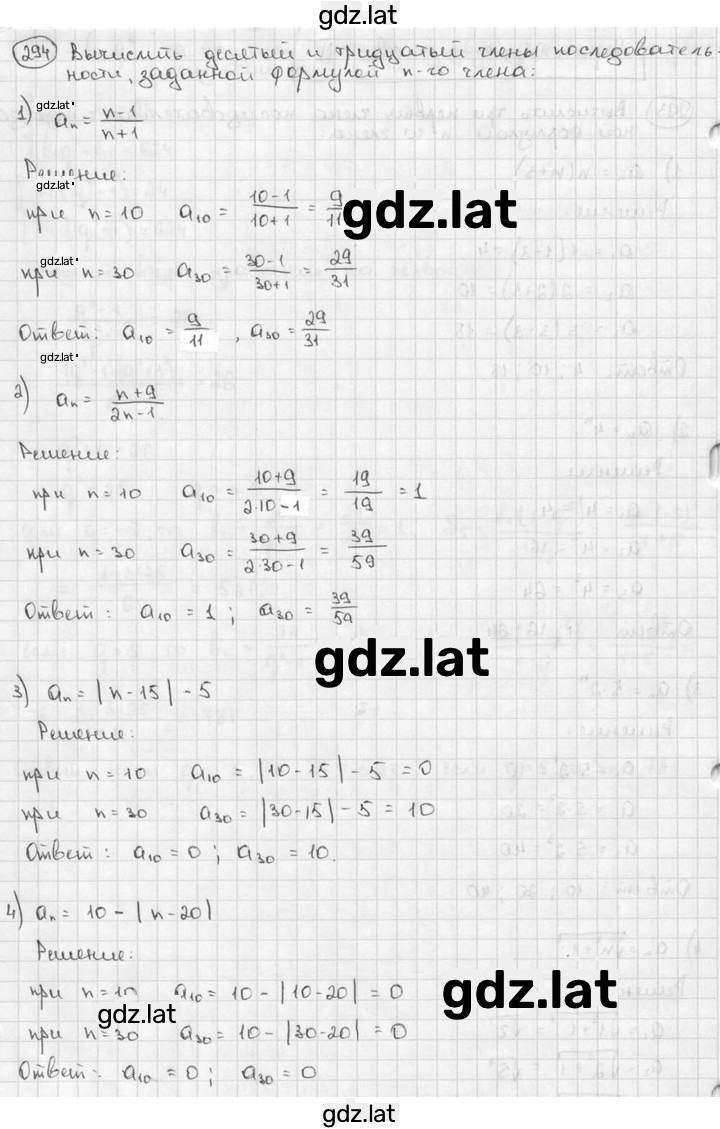 gdz.lat
294 Вычислить десятый и тридцатый члены последователь-
ности, заданной формулой n-го члена:
gdz.lat
1) aₙ = (n-1)/(n+1)
Решение:
gdz.lat
при n = 10 a₁₀ = (10-1)/(10+1) = 9/11
gdz.lat
gdz.lat
при n = 30 a₃₀ = (30-1)/(30+1) = 29/31
Ответ: a₁₀ = 9/11 , a₃₀ = 29/31
gdz.lat
2) aₙ = (n+9)/(2n-1)
Решение:
при n = 10 a₁₀ = (10+9)/(2·10-1) = 19/19 = 1
при n = 30 a₃₀ = (30+9)/(2·30-1) = 39/59
Ответ: a₁₀ = 1 ; a₃₀ = 39/59
gdz.lat
3) aₙ = |n-15| - 5
Решение:
при n = 10 a₁₀ = |10-15| - 5 = 0
при n = 30 a₃₀ = |30-15| - 5 = 10
Ответ: a₁₀ = 0 ; a₃₀ = 10.
4) aₙ = 10 - |n-20|
Решение:
при n = 10 a₁₀ = 10 - |10-20| = 0
gdz.lat
gdz.lat
при n = 30 a₃₀ = 10 - |30-20| = 0
Ответ: a₁₀ = 0 ; a₃₀ = 0
gdz.lat